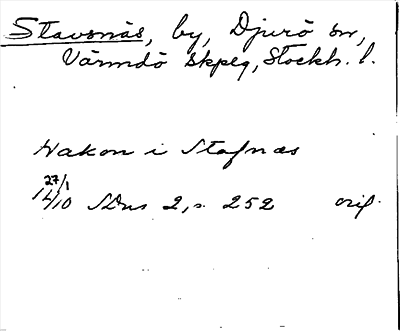 Stavsnäs, by, Djurö sn,
Värmdö skpg, Stockh. l.
Hakon i Stafnæs
27/1
1410 SDns 2, s. 252 orig.